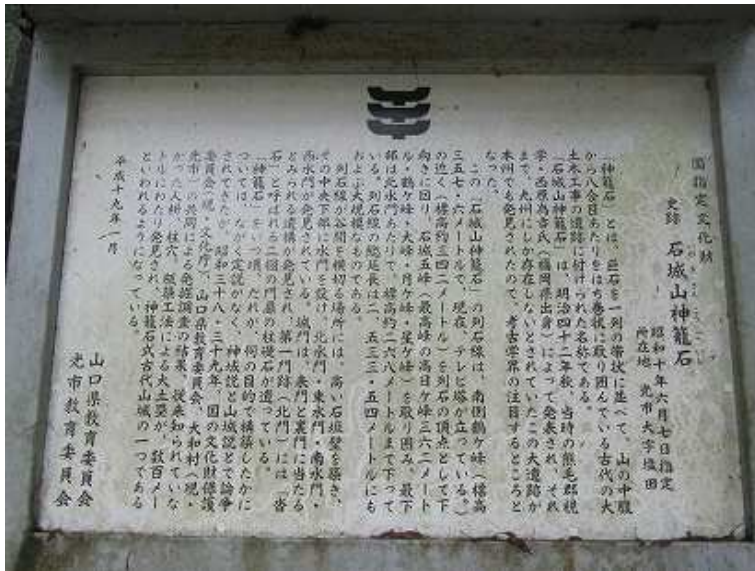 国指定文化財
史跡 石城山神籠石
昭和十年六月七日指定
所在地 光市大字塩田
「神籠石」とは、巨石を一列の帯状に並べて、山の中腹
から八合目あたりをはち巻状に取り囲んでいる古代の大
土木工事の遺跡に付けられた名称である。
「石城山神籠石」は、明治四十二年秋、当時の熊毛郡視
学・西原為吉氏(福岡県出身)によって発表され、それ
まで、九州にしか存在しないとされていたこの大遺跡が
本州でも発見されたので、考古学界の注目するところと
なった。
この「石城山神籠石」の列石線は、南側鶴ヶ峰(標高
三五七・六メートル)で、現在、テレビ塔が立っている。)
の近く(標高約三四二メートル)を列石の頂点として下
向きに回り、石城五峰(最高峰の高日ヶ峰三六二メート
ル・鶴ヶ峰・大峰・月ヶ峰・星ヶ峰)を取り囲み、最下
部は北水門あたりで、標高約二六八メートルまで下って
いる。列石線の総延長は二、五三三・五四メートルにも
およぶ大規模なものである。
列石線が谷間を横切る場所には、高い石垣壁を築き、
その中央下部に水門を設け、北水門・東水門・南水門・
西水門が発見されている。城門は、表門と裏門に当たる
とみられる遺構が発見され、第一門跡(北門)には「沓
石」と呼ばれる二個の門扉の柱礎石が遺っている。
「神籠石」をいつ頃、だれが、何の目的で構築したかに
ついては、ながく定説がなく、神域説と山城説とで論争
されてきたが、昭和三十八・三十九年、国の文化財保護
委員会(現・文化庁)、山口県教育委員会、大和村(現・
光市)の共同による発掘調査の結果、従来知られていな
かった人枡・柱穴、版築工法による大土塁が、数百メー
トルにわたり発見され、神籠石式古代山城の一つである
といわれるようになっている。
平成十九年一月
山口県教育委員会
光市教育委員会